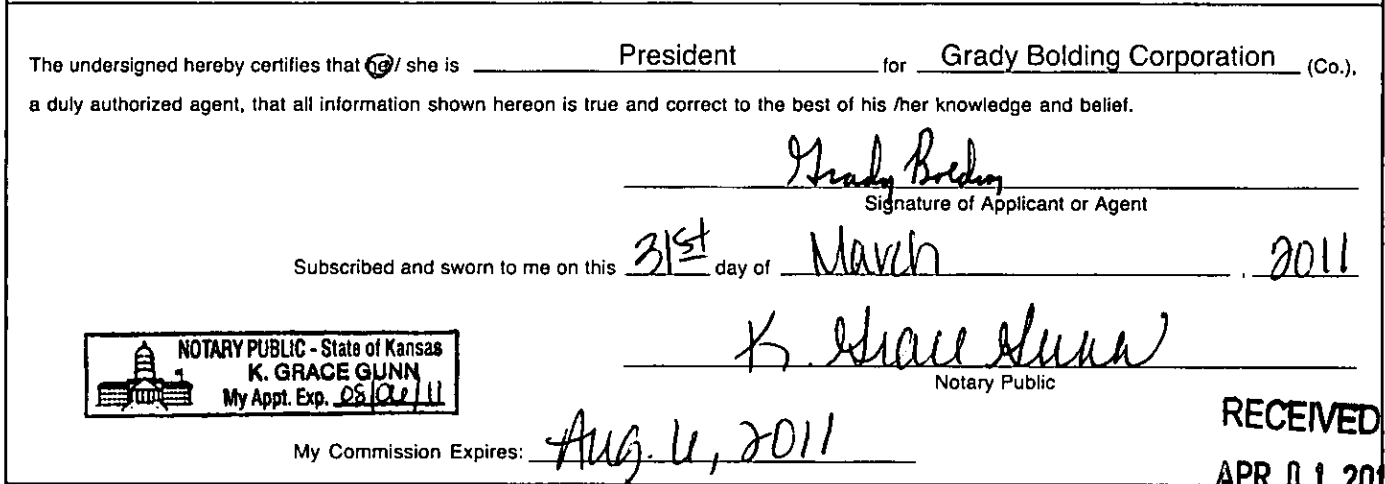 The undersigned hereby certifies that he / she is President for Grady Bolding Corporation (Co.),
a duly authorized agent, that all information shown hereon is true and correct to the best of his /her knowledge and belief.
Grady Bolding
Signature of Applicant or Agent
Subscribed and sworn to me on this 31st day of March , 2011
K. Grace Gunn
Notary Public
NOTARY PUBLIC - State of Kansas
K. GRACE GUNN
My Appt. Exp. 08/06/11
RECEIVED
My Commission Expires: Aug. 6, 2011
APR 01 201